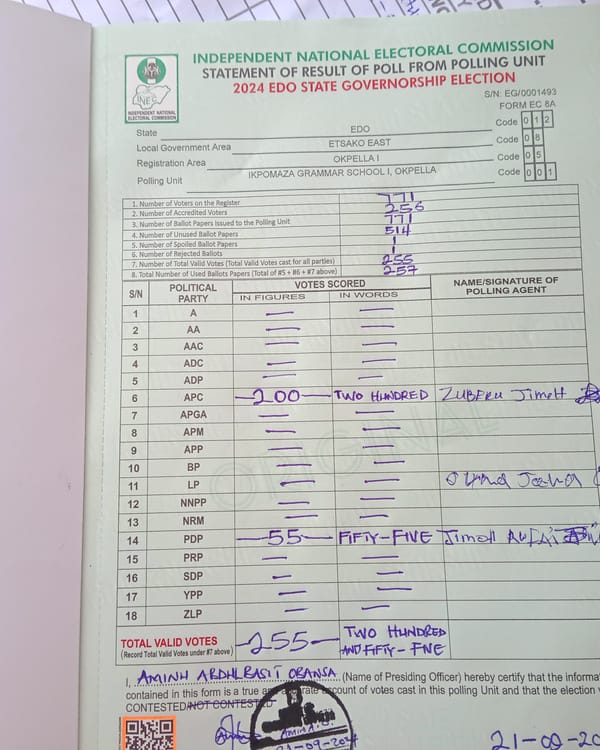 INDEPENDENT NATIONAL ELECTORAL COMMISSION
STATEMENT OF RESULT OF POLL FROM POLLING UNIT
2024 EDO STATE GOVERNORSHIP ELECTION
INEC
INDEPENDENT NATIONAL
ELECTORAL COMMISSION
S/N: EG/0001493
FORM EC 8A
State EDO Code 0 1 2
Local Government Area ETSAKO EAST Code 0 8
Registration Area OKPELLA I Code 0 5
Polling Unit IKPOMAZA GRAMMAR SCHOOL I, OKPELLA Code 0 0 1
1. Number of Voters on the Register 771
2. Number of Accredited Voters 256
3. Number of Ballot Papers Issued to the Polling Unit 771
4. Number of Unused Ballot Papers 514
5. Number of Spoiled Ballot Papers 1
6. Number of Rejected Ballots 1
7. Number of Total Valid Votes (Total Valid Votes cast for all parties) 255
8. Total Number of Used Ballots Papers (Total of #5 + #6 + #7 above) 257
S/N POLITICAL PARTY VOTES SCORED NAME/SIGNATURE OF POLLING AGENT
IN FIGURES IN WORDS
1 A — —
2 AA — —
3 AAC — —
4 ADC — —
5 ADP — —
6 APC —200— TWO HUNDRED ZUBERU Jimoh
7 APGA — —
8 APM — —
9 APP — —
10 BP — —
11 LP — —
12 NNPP — —
13 NRM — —
14 PDP —55— FIFTY-FIVE Jimoh
15 PRP — —
16 SDP — —
17 YPP — —
18 ZLP — —
ORIGINAL
TOTAL VALID VOTES —255— TWO HUNDRED
(Record Total Valid Votes under #7 above) AND FIFTY-FIVE
I, AMINH ABDULBASIT OBANSA (Name of Presiding Officer) hereby certify that the informa
contained in this form is a true a rate account of votes cast in this polling Unit and that the election
CONTESTED/NOT CONTESTED
21-09-20